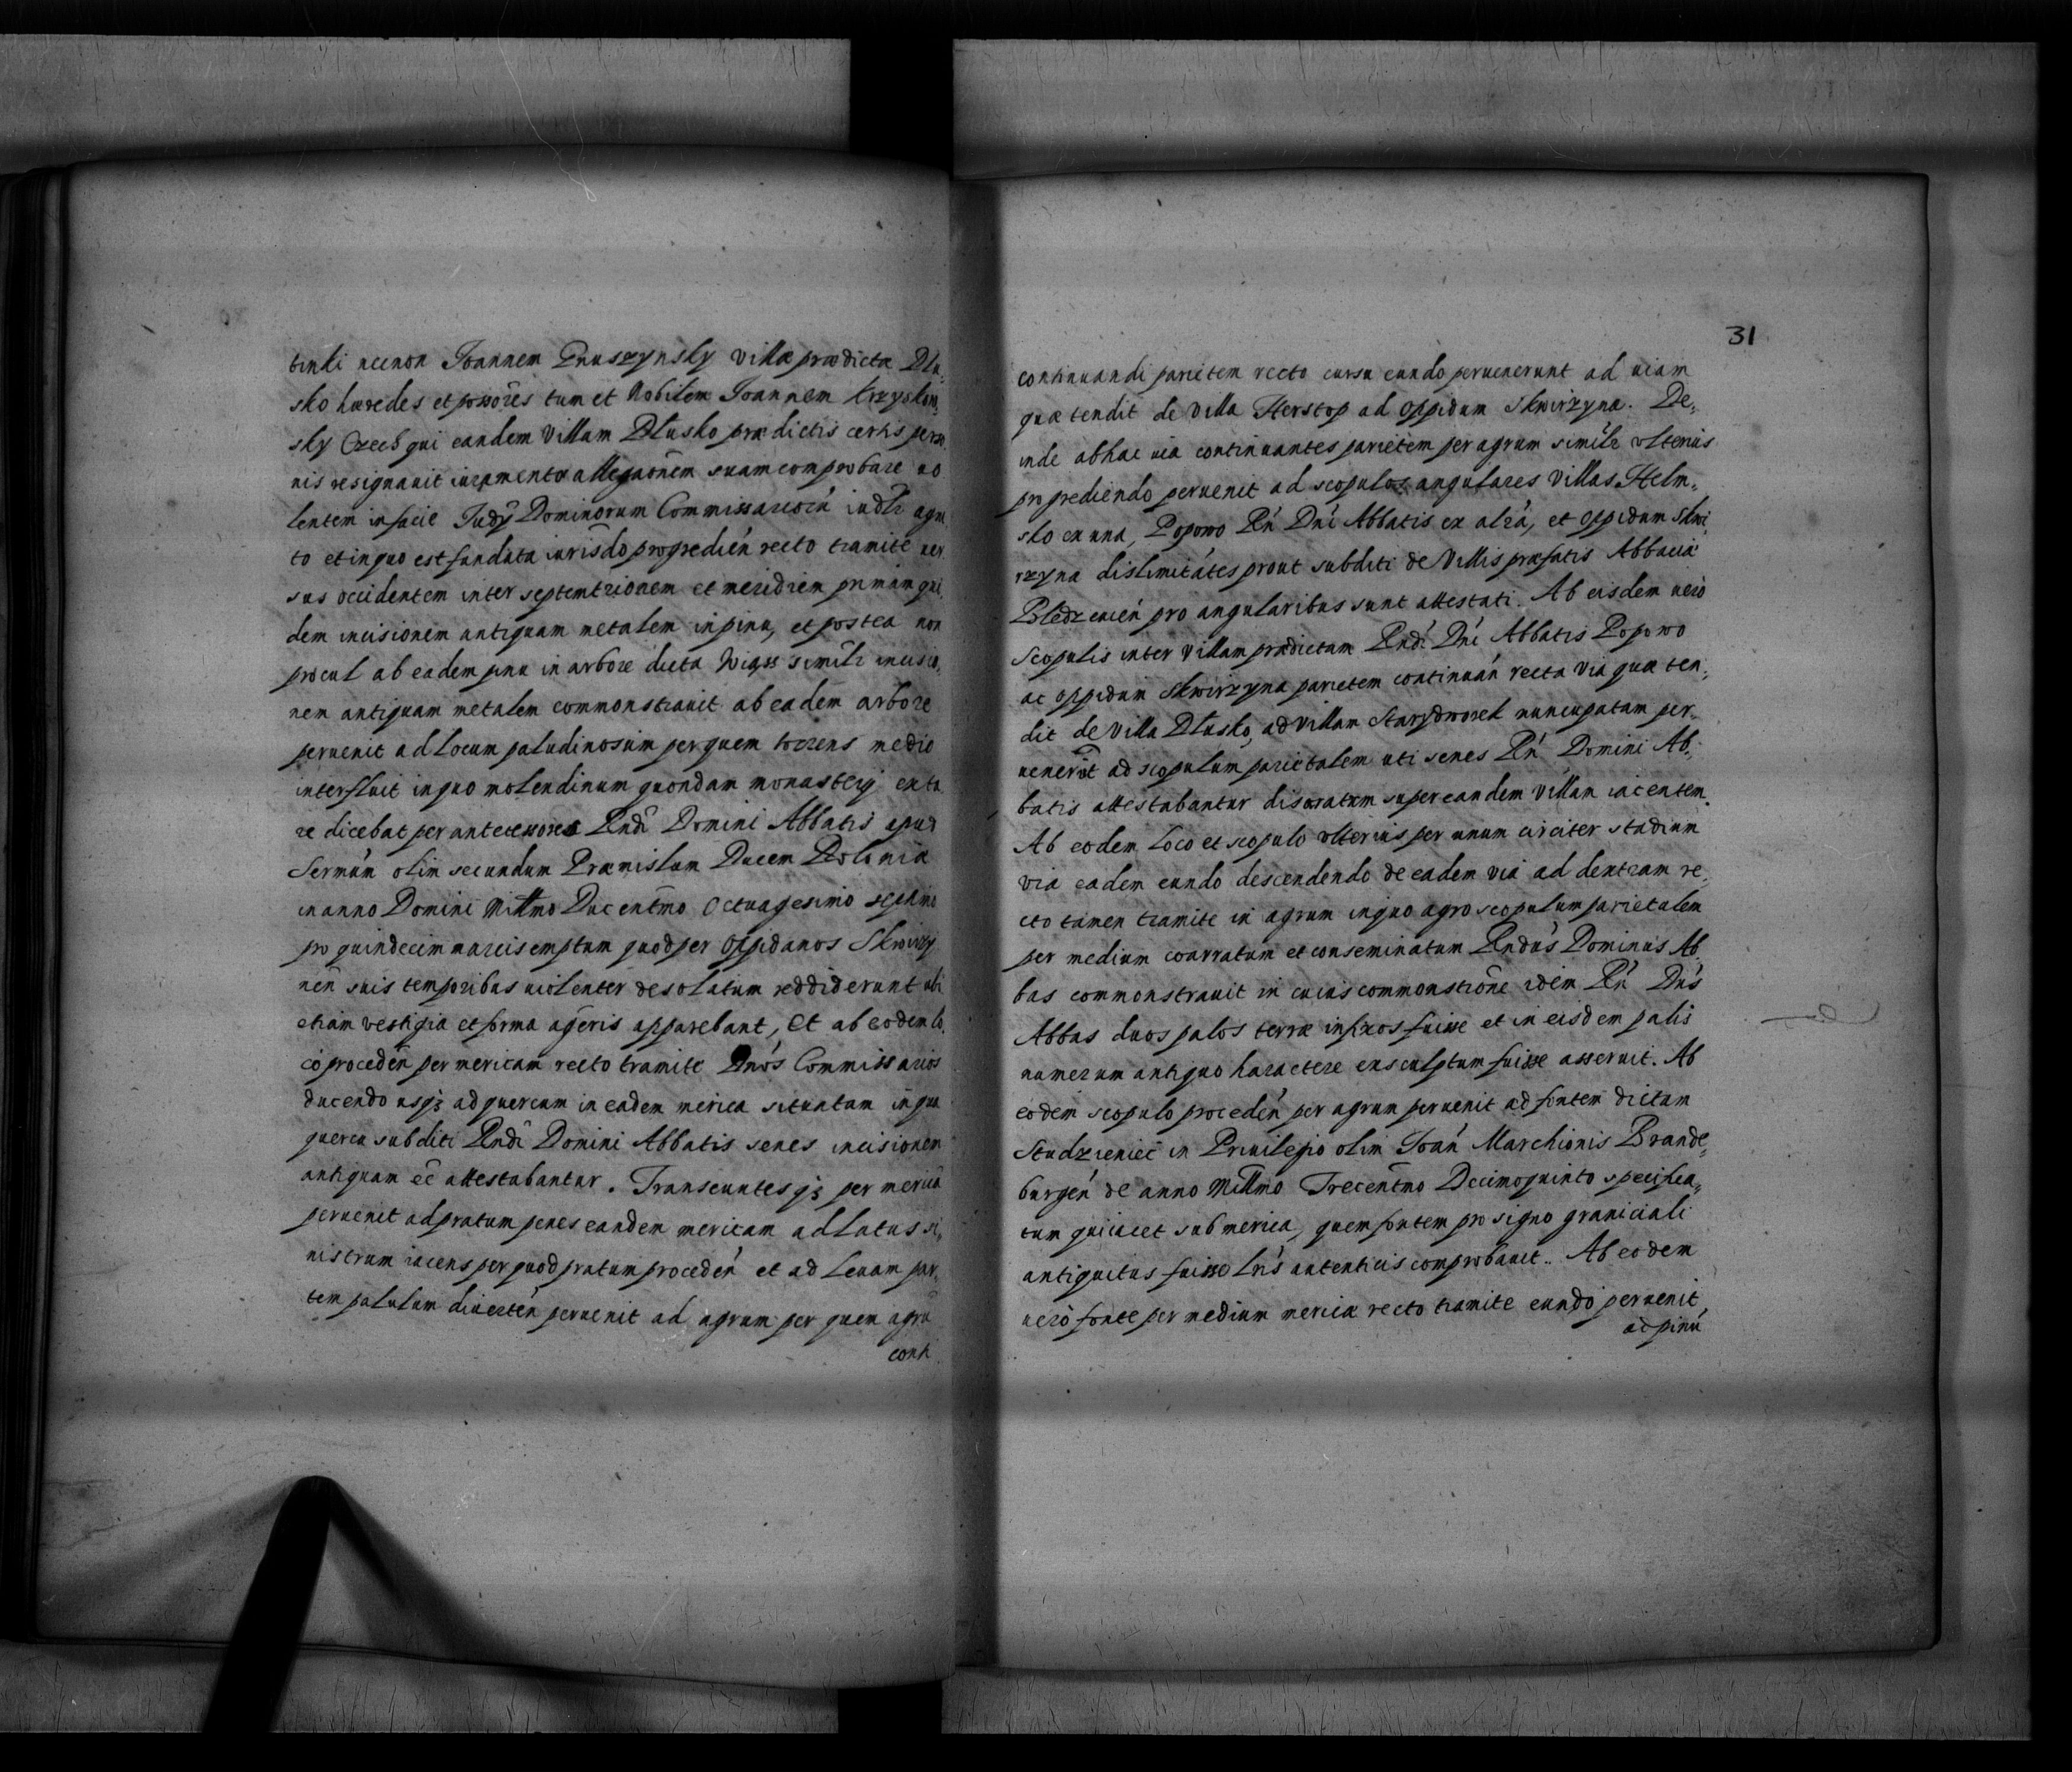 tinki necnon Joannem Pruszynsky villæ prædictæ Dlu,
sko hæredes et possores tum et Nobilem Joannem Krzyskow,
sky Czecs qui eandem Villam Dlusko prædictis certis perso
nis resignauit iuramento allegaonem suam comprobare uo
lentem in facie Judy Dominorum Commissariorū iudlr agni
to et in quo est fundata iurisdo progredien recto tramite uer
sus occidentem inter septemtrionem et meridiem primam qui,
dem incisionem antiquam metalem in pinu, et postea non
procul ab eadem pinu in arbore dicta Wiąss similr incisio,
nem antiquam metalem commonstrauit ab eadem arbore
peruenit ad locum paludinosum per quem torrens medio
interfluit in quo molendinum quondam monastery exta
re dicebat per antecessores Rndi Domini Abbatis apud
Sermun olim secundum Præmislum Ducem Poloniæ
in anno Domini Millmo Ducentmo Octuagesimo septimo
pro quindecim marcis emptum quod per Oppidanos Skwirzy
nen suis temporibus uiolenter desolatum reddiderunt ubi
etiam vestigia et forma ageris apparebant, Et ab eodem lo,
co proceden per mericam recto tramite Dnos Commissarios
ducendo usqz ad quercum in eadem merica situatam in qua
quercu subditi Rndi Domini Abbatis senes incisionem
antiquam ēe attestabantur. Transeuntes qz per mericā
peruenit ad pratum penes eandem mericam ad latus si,
nistrum iacens per quod pratum proceden et ad leuam par,
tem paululum diuerten peruenit ad agrum per quem agrū
conti
31
continuandi parietem recto cursu eundo peruenerunt ad uiam
quæ tendit de Villa Herstop ad Oppidum Skwirzyna. De,
inde ab hac uia continuantes parietem per agrum similr vlterius
progrediendo peruenit ad scopulos angulares Villas Helm,
sko ex una, Popowo Rn Dni Abbatis ex alrā, et Oppidum Skwi
rzyna dislimitātes prout subditi de Villis præfatis Abbaciæ
Bledzeuien pro angularibus sunt attestati. Ab eisdem uero
scopulis inter Villam prædictam Rndi Dni Abbatis Popowo
ac Oppidum Skwirzyna parietem continuan recta via quæ ten,
dit de Villa Dlusko, ad Villam Starydworek nuncupatam per,
uenerūt ad scopulum parietalem uti senes Rn Domini Ab,
batis attestabantur super eandem Villam iacentem.
Ab eodem loco et scopulo vlterius per unum circiter stadium
via eadem eundo descendendo de eadem via ad dextram re,
cto tamen tramite in agrum in quo agro scopulum parietalem
per medium coarratum et conseminatum Rndus Dominus Ab,
bas commonstrauit in cuius commonstrone idem Rn Dns
Abbas duos palos terræ infixos fuisse et in eisdem palis
numerum antiquo haractere exsculptum fuisse asseruit. Ab
eodem scopulo proceden per agrum peruenit ad fontem dictam
Studzieniec in Priuilegio olim Joan Marchionis Brande,
burgen de anno Millmo Trecentmo Decimoquinto specifica,
tum qui iacet sub merica, quem fontem pro signo graniciali
antiquitus fuisse lris autenticis comprobauit. Ab eodem
uero fonte per medium mericæ recto tramite eundo peruenit
ad pinū